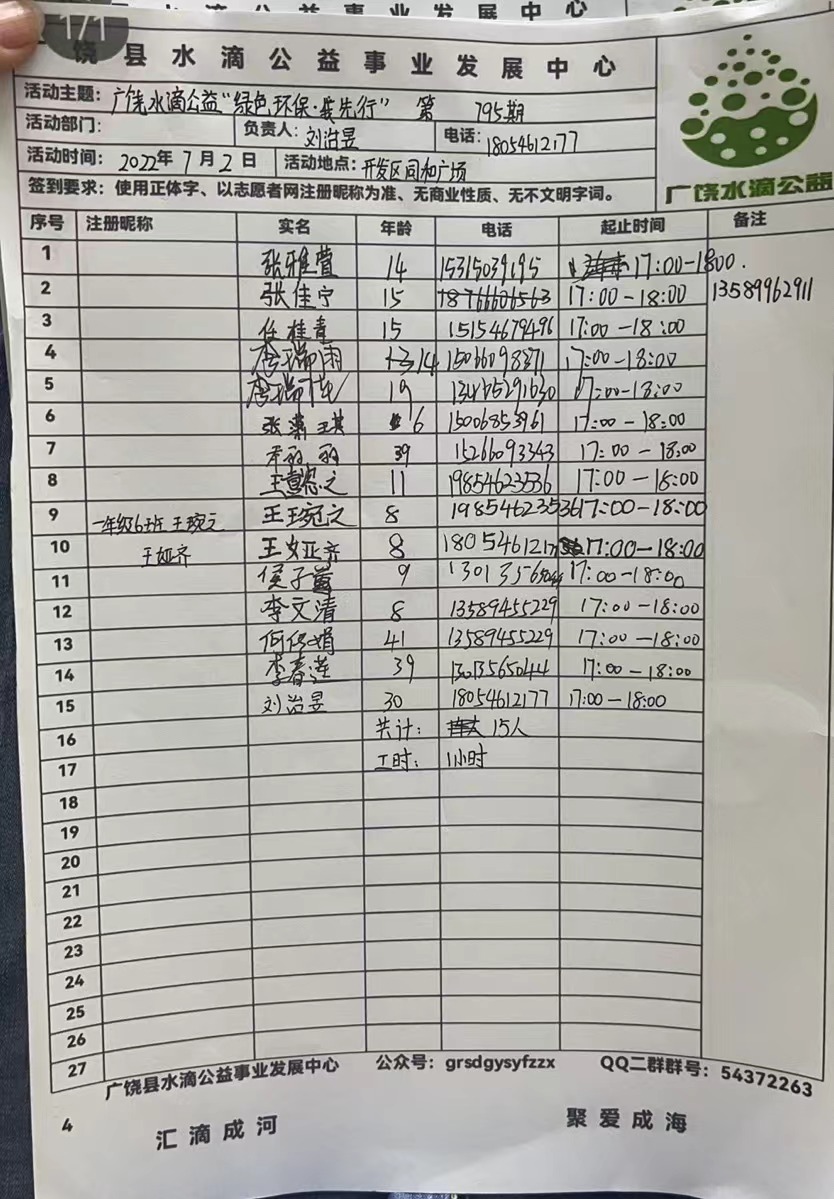 水滴公益事业发展中心
1/1
饶县水滴公益事业发展中心
活动主题: 广饶水滴公益"绿色环保·我先行" 第 795期
活动部门: 负责人: 刘治昱 电话: 18054612177
活动时间: 2022年7月2日 活动地点: 开发区同和广场
签到要求: 使用正体字、以志愿者网注册昵称为准、无商业性质、无不文明字词。
广饶水滴公益
序号 注册昵称 实名 年龄 电话 起止时间 备注
1 张雅萱 14 15315039195 17:00-1800.
2 张佳宁 15 18766606563 17:00-18:00 13589962911
3 任桂青 15 15154679496 17:00-18:00
4 李瑞雨 14 15066098371 17:00-18:00
5 李瑞 19 17:00-18:00
6 张 琪 6 15006853961 17:00-18:00
7 39 15266093343 17:00-18:00
8 王懿之 11 19854623536 17:00-18:00
9 一年级6班 王琬之 王琬之 8 19854623536 17:00-18:00
10 王娅齐 王娅齐 8 1805461217 17:00-18:00
11 侯子萱 9 17:00-18:00
12 李文清 8 13589455229 17:00-18:00
13 何 娟 41 13589455229 17:00-18:00
14 李春莲 39 13013565044 17:00-18:00
15 刘治昱 30 18054612177 17:00-18:00
16 共计: 15人
17 工时: 1小时
18
19
20
21
22
23
24
25
26
27
广饶县水滴公益事业发展中心 公众号: grsdgysyfzzx QQ二群群号: 54372263
4 汇滴成河 聚爱成海